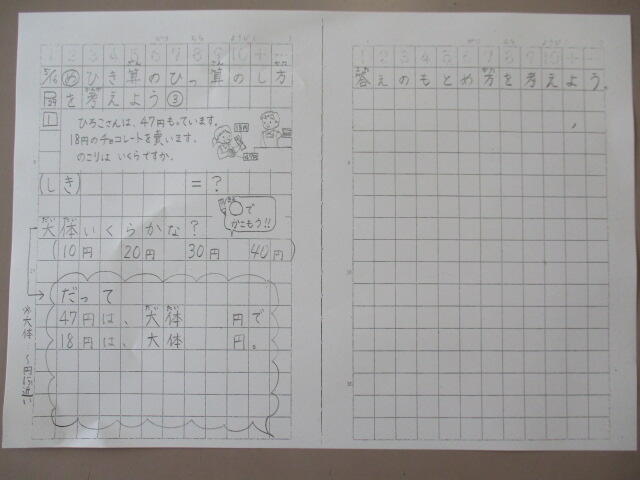 1 2 3 4 5 6 7 8 9 10 + -
5/16 め ひき算のひっ算のし方
を考えよう③
1 ひろこさんは、47円もっています。
18円のチョコレートを買います。
のこりは いくらですか。
(しき) =?
大体いくらかな?
○で
かこもう!!
(10円 20円 30円 40円)
だって
47円は、大体 円で
18円は、大体 円。
※大体…~円に近い
1 2 3 4 5 6 7 8 9 10 + -
答えのもとめ方を考えよう。